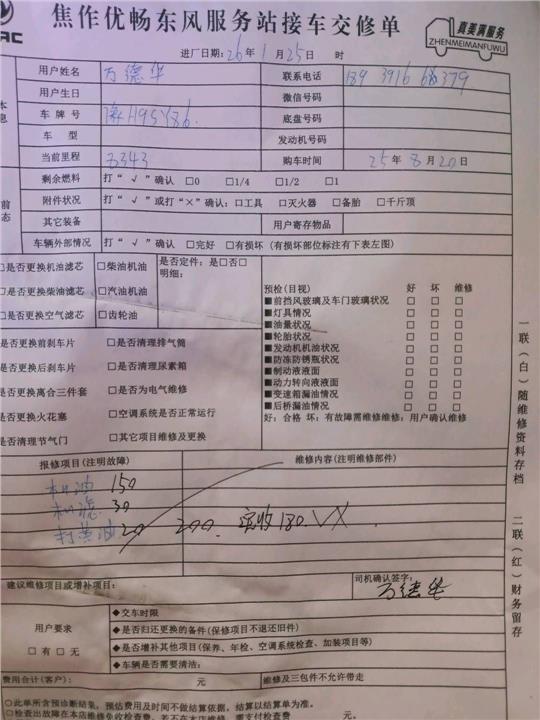 焦作优畅东风服务站接车交修单
真美满服务
ZHENMEIMANFUWU
AC
进厂日期:26年1月25日 时
用户姓名 万德华 联系电话
用户生日 微信号码
车牌号 底盘号码
车 型 发动机号码
当前里程 8343 购车时间 25年8月20日
剩余燃料 打“√”确认 □0 □1/4 □1/2 □1
附件状况 打“√”或打“×”确认:□工具 □灭火器 □备胎 □千斤顶
其它装备 用户寄存物品
车辆外部情况 打“√”确认 □完好 □有损坏(有损坏部位标注有下表左图)
□是否更换机油滤芯 □柴油机油 是否定件:是□否□
明细:
是否更换柴油滤芯 □汽油机油
是否更换空气滤芯 □齿轮油
是否更换前刹车片 □是否清理排气筒
是否更换后刹车片 □是否清理尿素箱
是否更换离合三件套 □是否为电气维修
是否更换火花塞 □空调系统是否正常运行
是否清理节气门 □其它项目维修及更换
预检(目视) 好 坏 维修
■前挡风玻璃及车门玻璃状况 □ □ □
■灯具情况 □ □ □
■油量状况 □ □ □
■轮胎状况 □ □ □
■发动机机油状况 □ □ □
■防冻防锈瓶状况 □ □ □
■制动液液面 □ □ □
■动力转向液液面 □ □ □
■变速箱漏油情况 □ □ □
■后桥漏油情况 □ □ □
好:合格 坏:有故障需维修维修:用户确认维修
报修项目(注明故障) 维修内容(注明维修部件)
机油 150
机滤 30
打黄油 20 200. 实收180.
建议维修项目或增补项目: 司机确认签字:
万德华
用户要求
□有 □无
◆交车时限
◆是否归还更换的备件(保修项目不退还旧件)
◆是否增补其他项目(保养、年检、空调系统检查、加装项目等)
◆车辆是否需要清洁:
费用合计(客户): 元 维修及三包件不允许带走
○此单所含预诊断结果,预估费用及时间不做结算依据,结算以结算单为准。
一联(白)随维修资料存档
二联(红)财务留存